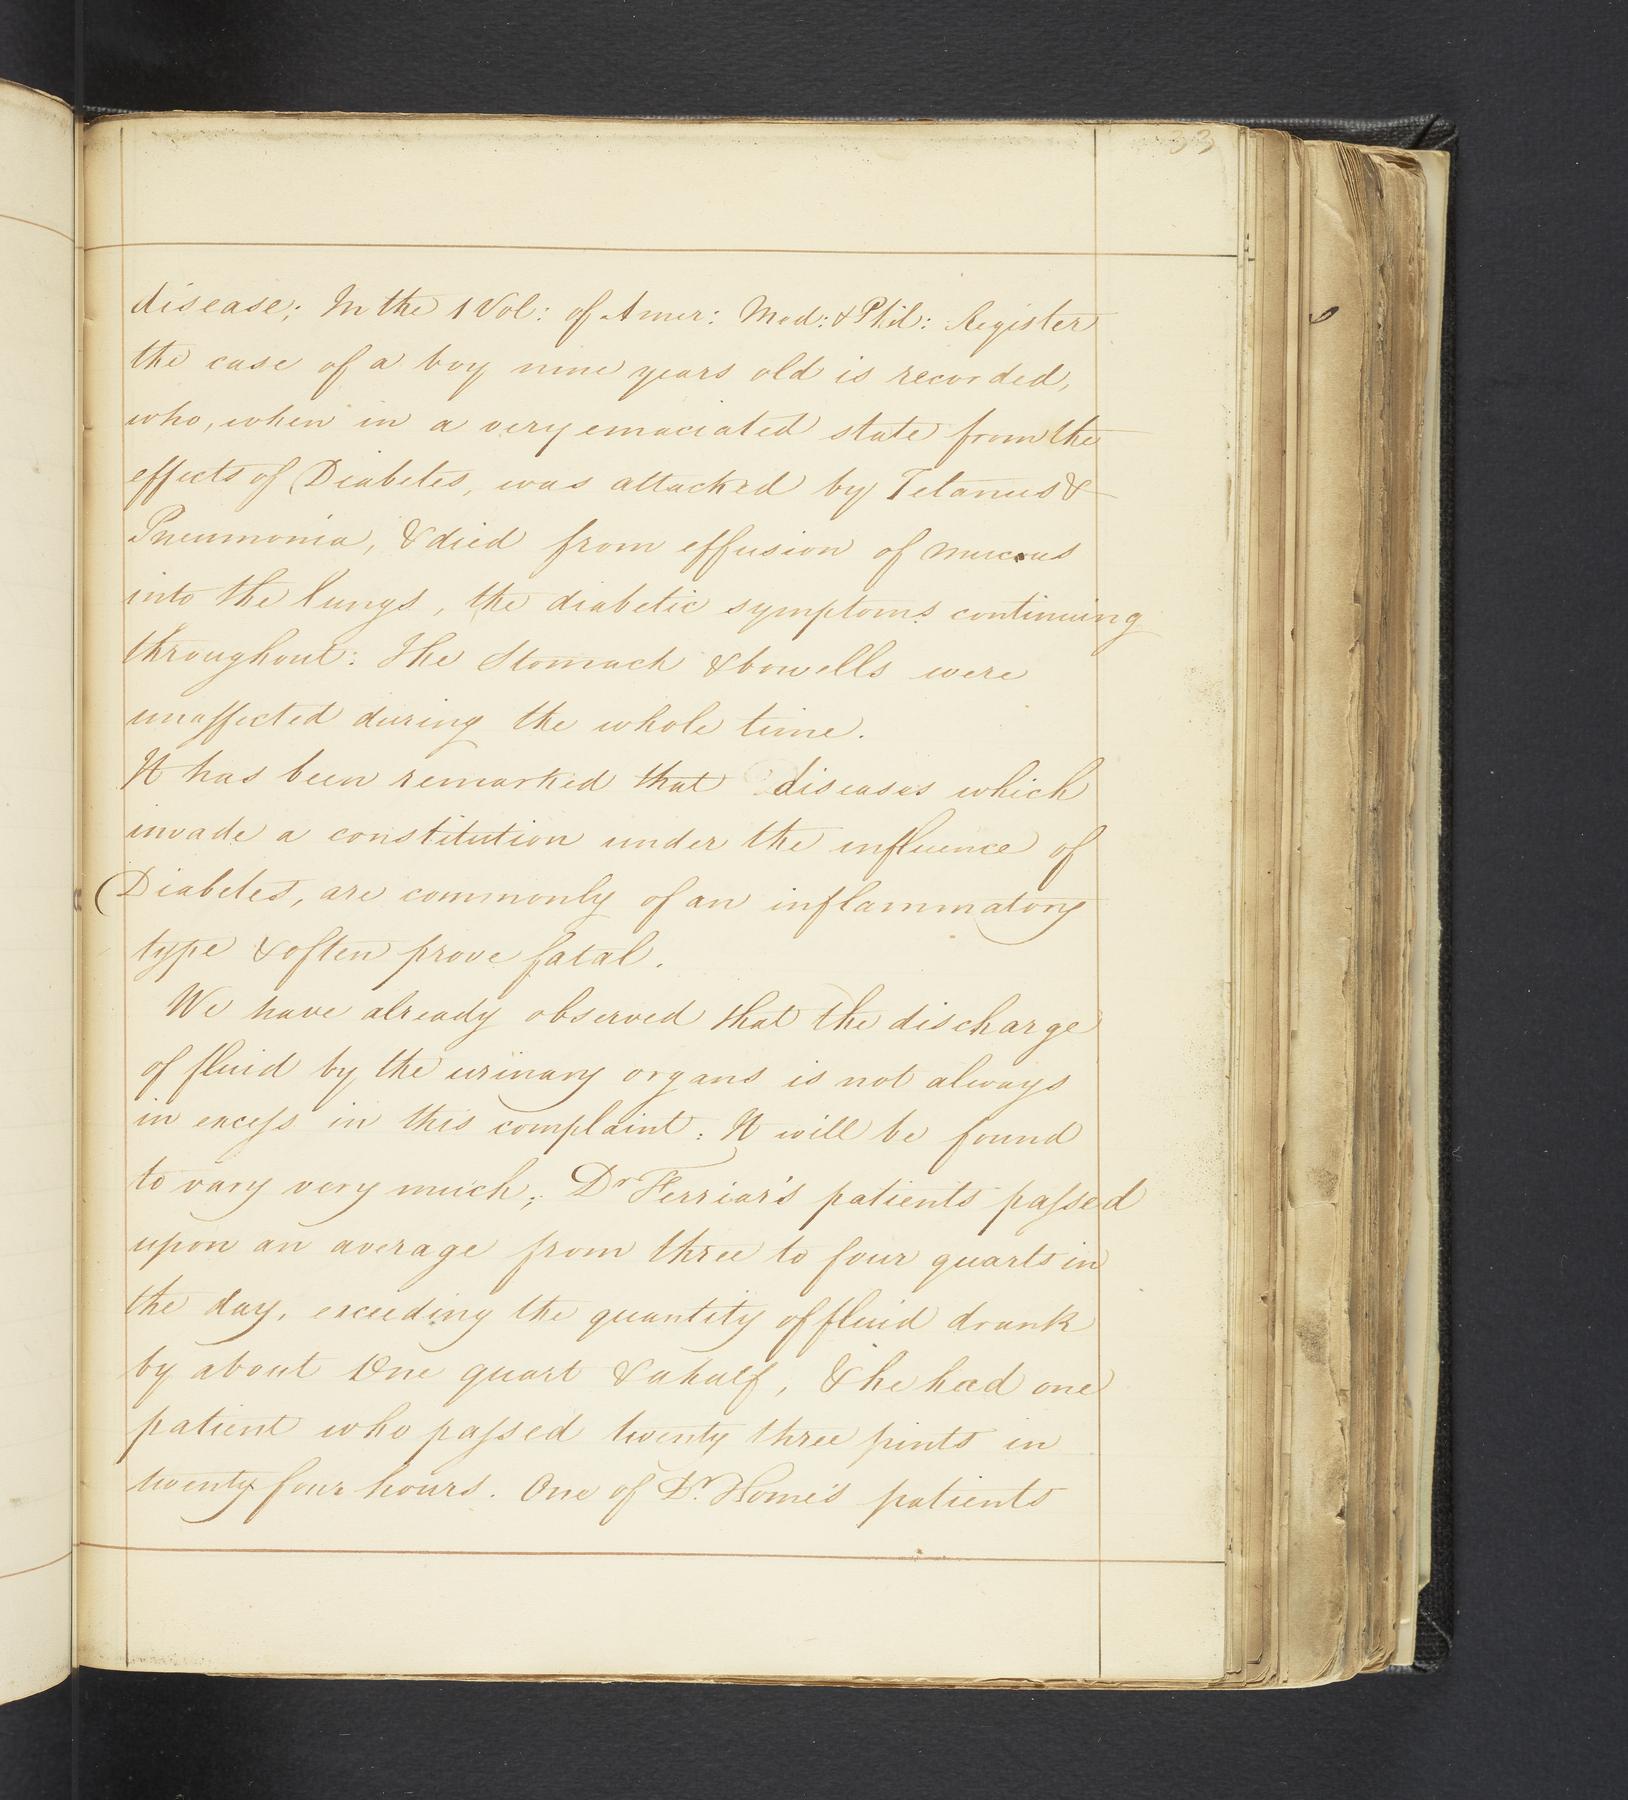 33
disease; In the 1 Vol: of Amer: Med: & Phil: Register
the case of a boy nine years old is recorded,
who, when in a very emaciated state from the
effects of Diabetes, was attacked by Tetanus &
Pneumonia, & died from effusion of mucous
into the lungs, the diabetic symptoms continuing
throughout: The Stomach & bowells were
unaffected during the whole time.
It has been remarked that diseases which
invade a constitution under the influence of
Diabetes, are commonly of an inflammatory
type & often prove fatal.
We have already observed that the discharge
of fluid by the urinary organs is not always
in excess in this complaint: It will be found
to vary very much; Dr Ferriar's patients passed
upon an average from three to four quarts in
the day, exceeding the quantity of fluid drank
by about One quart & a half, & he had one
patient who passed twenty three pints in
twenty four hours. One of Dr. Home's patients